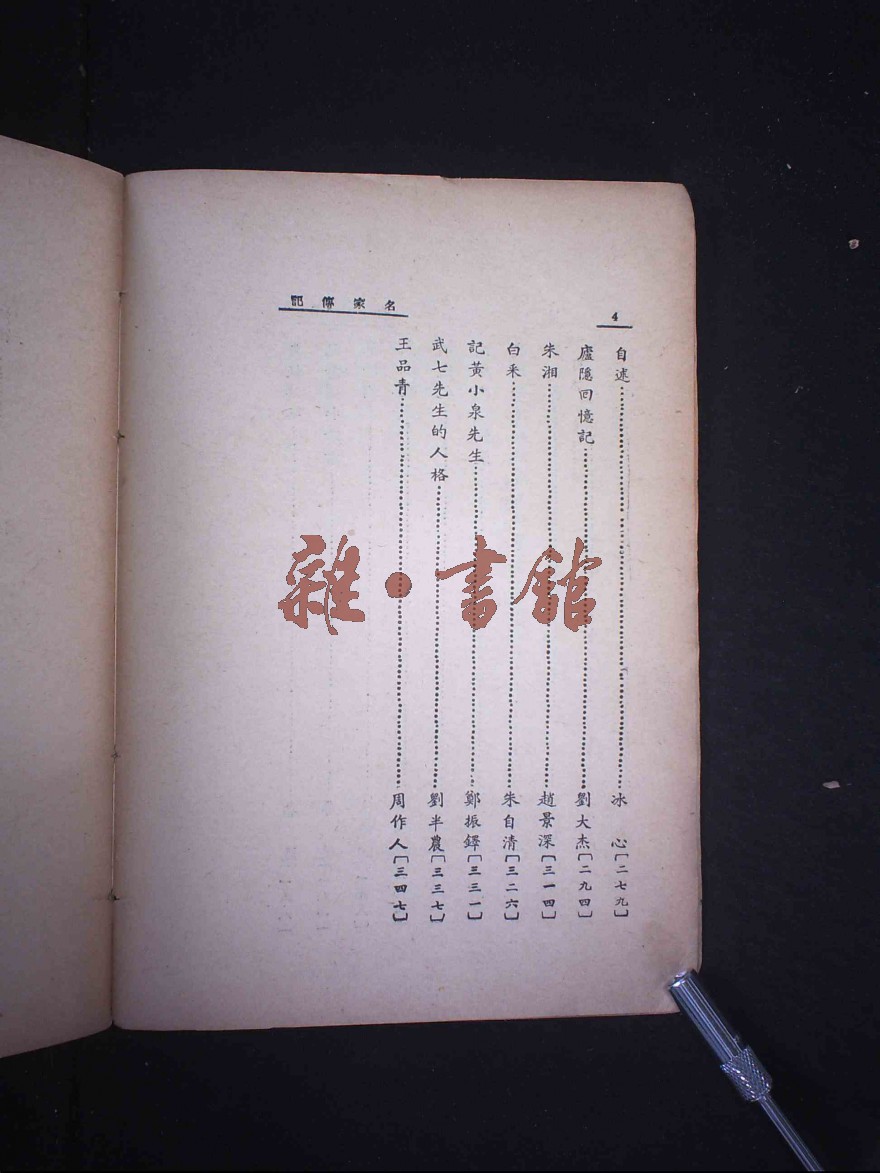 名家傳記
4
自述……冰　心［二七九］
廬隱回憶記……劉大杰［二九四］
朱湘……趙景深［三一四］
白采……朱自清［三二六］
記黃小泉先生……鄭振鐸［三三一］
武七先生的人格……劉半農［三三七］
王品青……周作人［三四七］
雜·書館